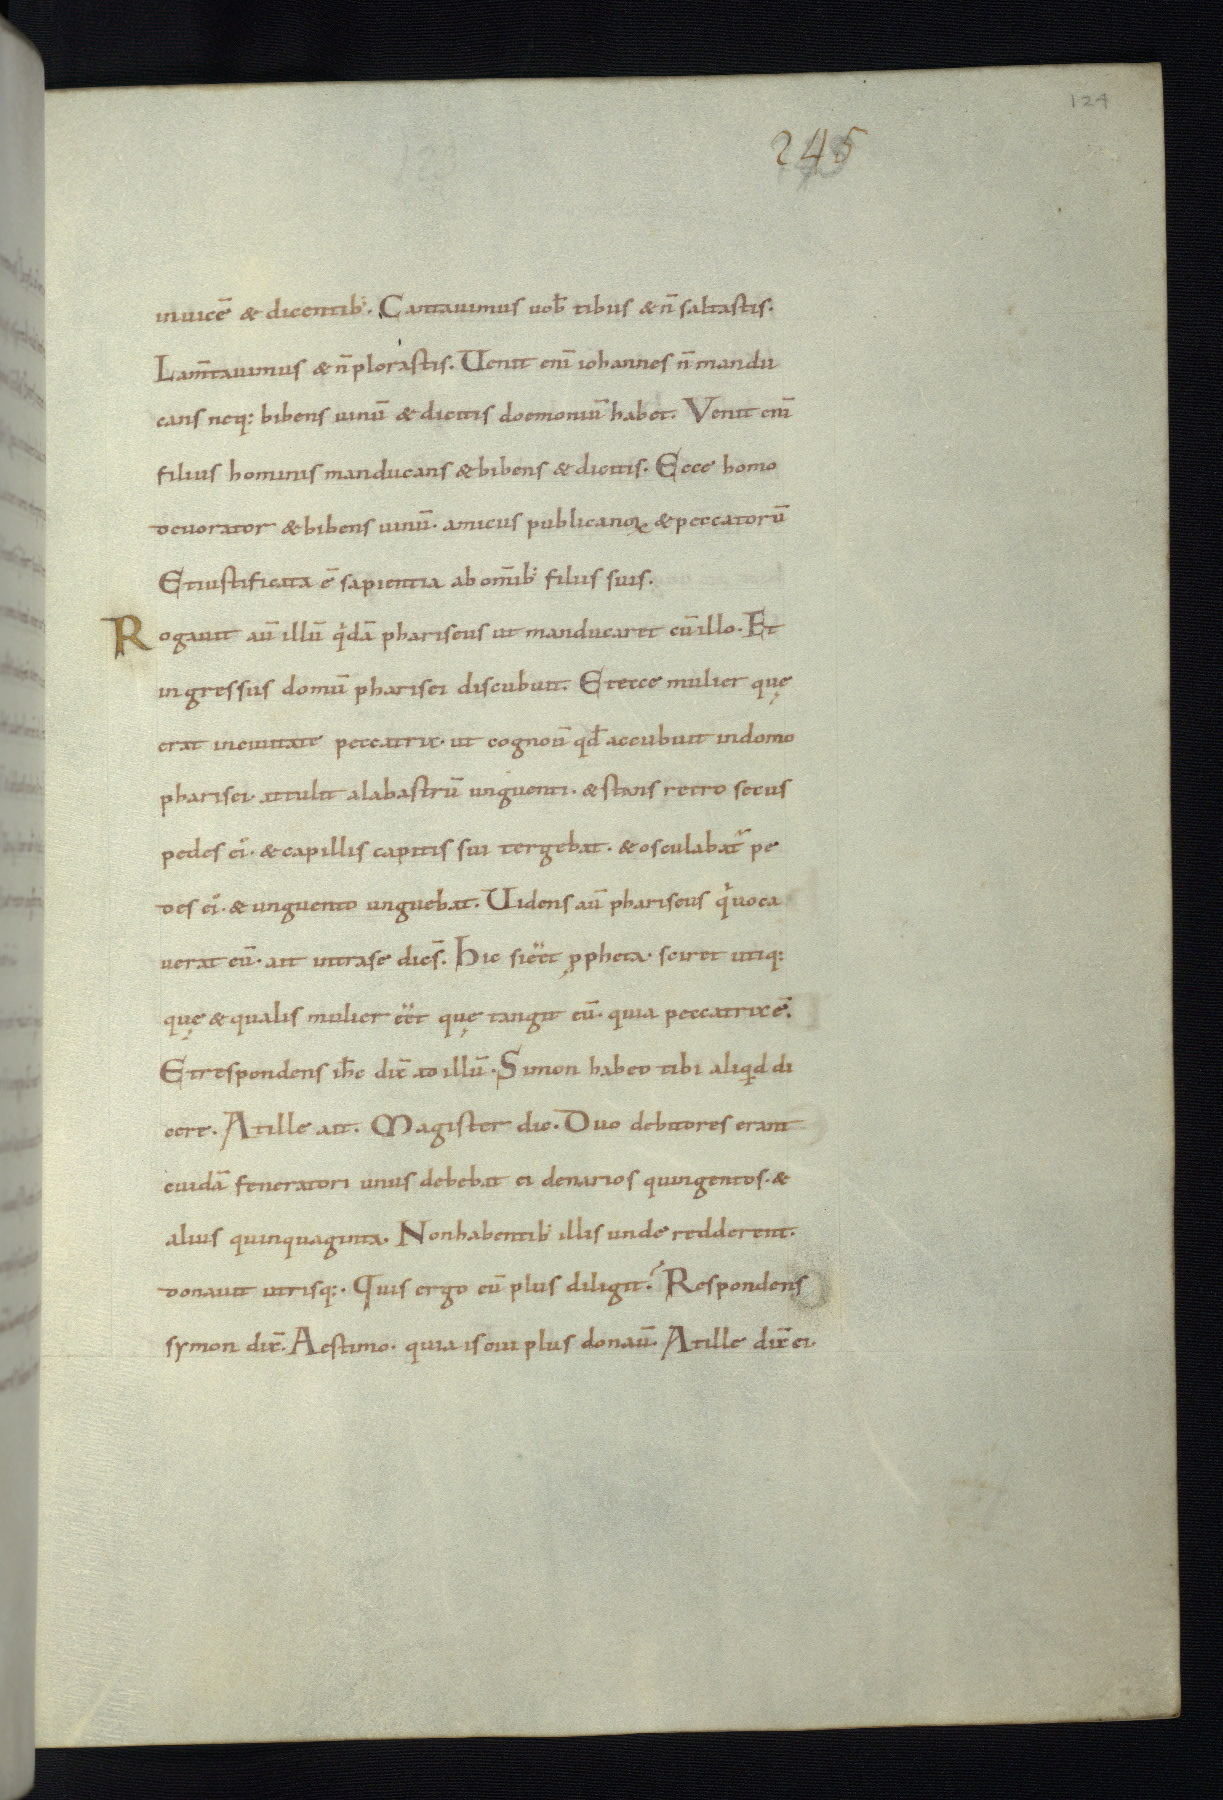 124
245
inuicē & dicentib'. Cantauimus uob̄ tibiis & n̄ saltastis.
Lam̄tauimus & n̄ plorastis. Uenit enī iohannes n̄ mandu
cans neq: bibens uinū & dicitis doemoniū habet. Venit enī
filius hominis manducans & bibens & dicitis. Ecce homo
deuorator & bibens uinū. amicus publicanoꝝ & peccatorū
Et iustificata ē sapientia ab om̄ib' filiis suis.
Rogauit aū illū qͥdā phariseus ut manducaret cū illo. Et
ingressus domū pharisei discubuit. Et ecce mulier quę
erat in ciuitate peccatrix. ut cognouͥ qd̄ accubuit in domo
pharisei. attulit alabastrū unguenti. & stans retro secus
pedes ei'. & capillis capitis sui tergebat. & osculabat᷑ pe
des ei'. & unguento unguebat. Uidens aū phariseus qͥ uoca
uerat eū. ait intra se dicēs. Hic si eēt ꝓpheta. sciret utiq:
quę & qualis mulier eēt quę tangit eū. quia peccatrix ē.
Et respondens ih̄c dix̄ ad illū. Simon habeo tibi aliqͥd di
cere. At ille ait. Magister dic. Duo debitores erant
cuidā feneratori unus debebat ei denarios quingentos. &
alius quinquaginta. Non habentib' illis unde redderent.
donauit utrisq:. Quis ergo eū plus diligit? Respondens
symon dix̄. Aestimo. quia is cui plus donauͥ. At ille dix̄ ei.